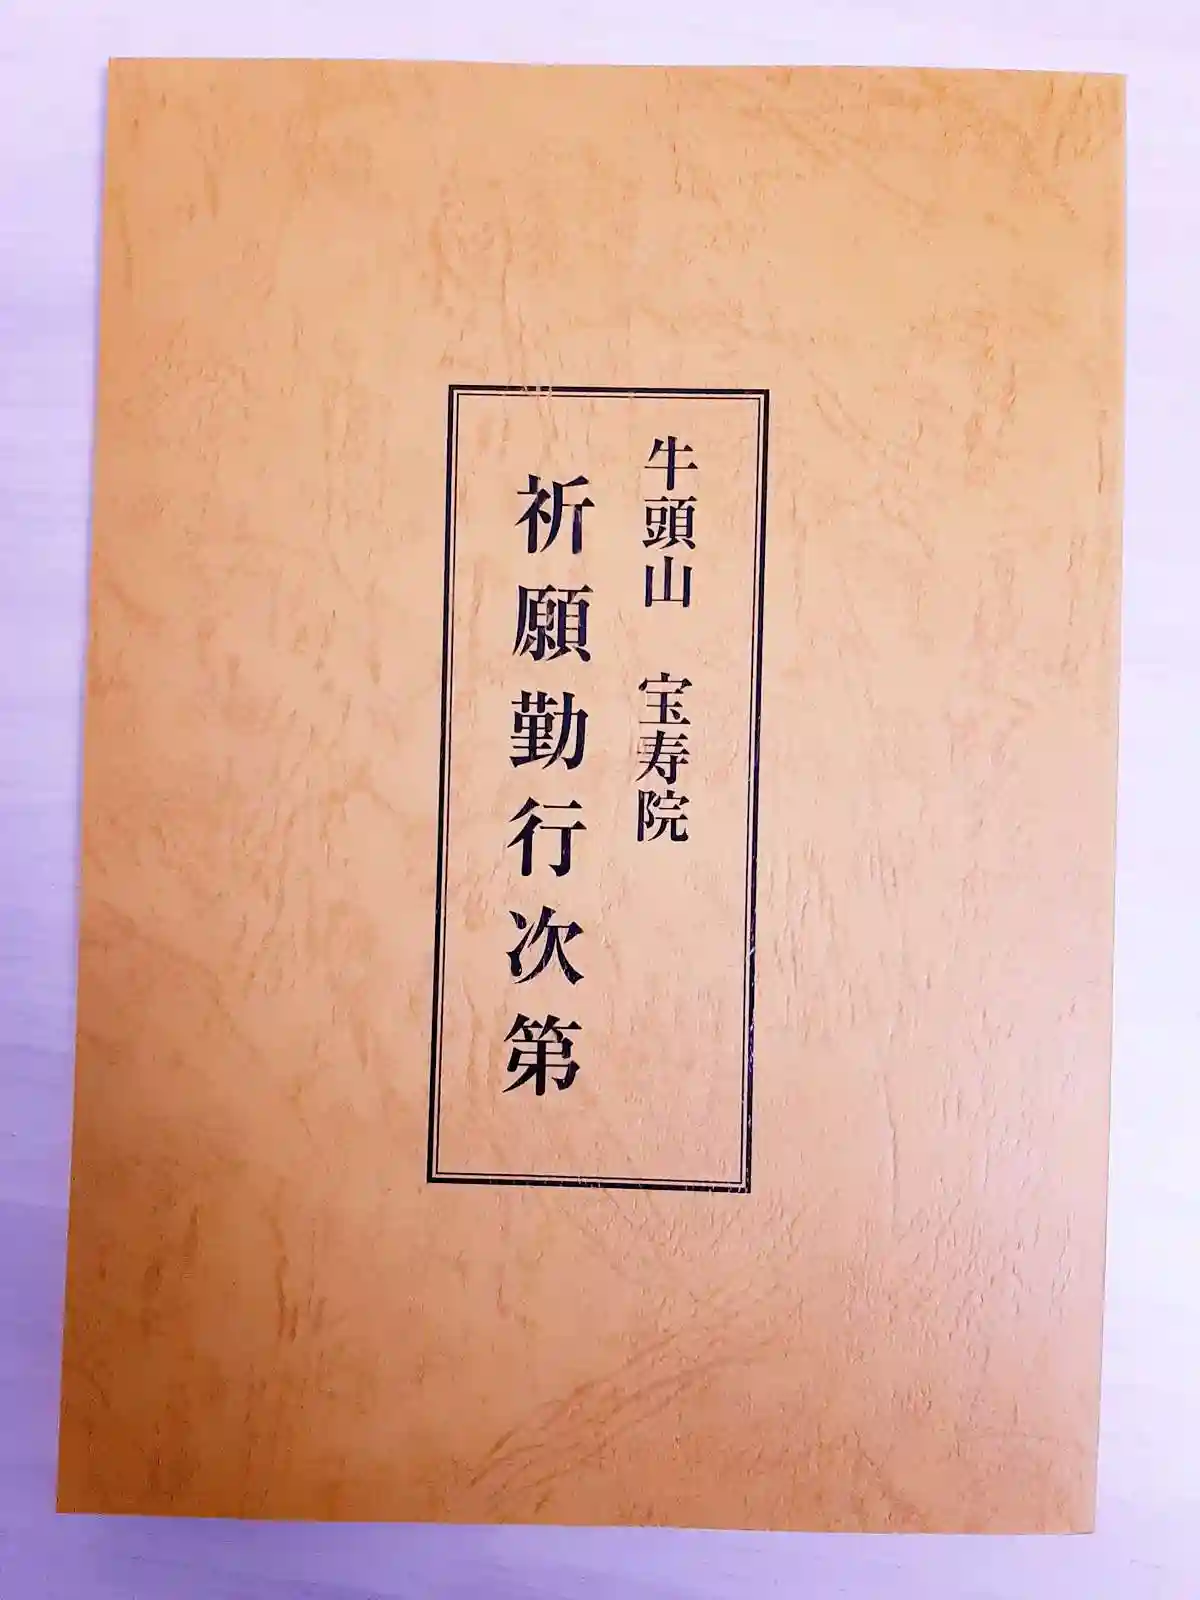 牛頭山　宝寿院
祈願勤行次第